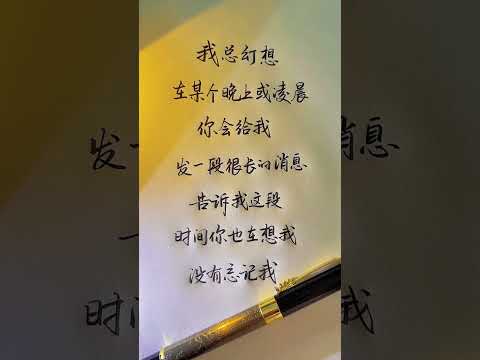 我总幻想
在某个晚上或凌晨
你会给我
发一段很长的消息
告诉我这段
时间你也在想我
没有忘记我